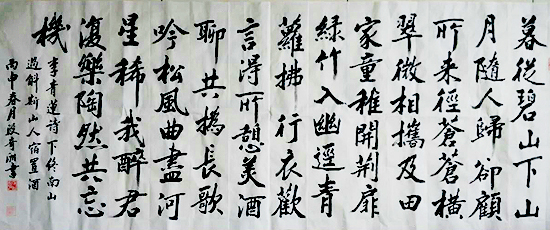 暮從碧山下山
月隨人歸卻顧
所来徑蒼蒼横
翠微相攜及田
家童稚開荆扉
緑竹入幽逕青
蘿拂行衣歡
言得所憩美酒
聊共揮長歌
吟松風曲盡河
星稀我醉君
復樂陶然共忘
機
李青蓮詩下終南山
過斛斯山人宿置酒
丙申春月殷奇書